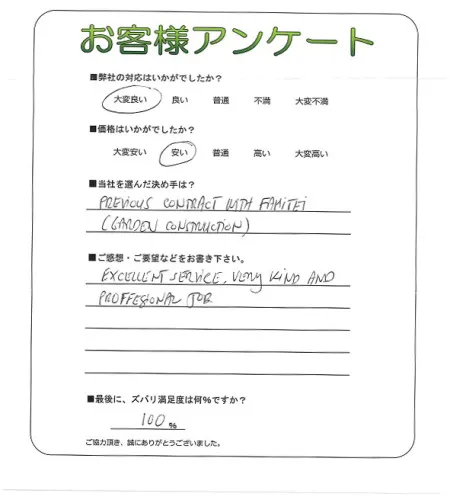 お客様アンケート
■弊社の対応はいかがでしたか？
大変良い 良い 普通 不満 大変不満
■価格はいかがでしたか？
大変安い 安い 普通 高い 大変高い
■当社を選んだ決め手は？
PREVIOUS CONTRACT WITH FAMITEI
(GARDEN CONSTRUCTION)
■ご感想・ご要望などをお書き下さい。
EXCELLENT SERVICE, VERY KIND AND
PROFFESIONAL JOB
■最後に、ズバリ満足度は何％ですか？
100 %
ご協力頂き、誠にありがとうございました。